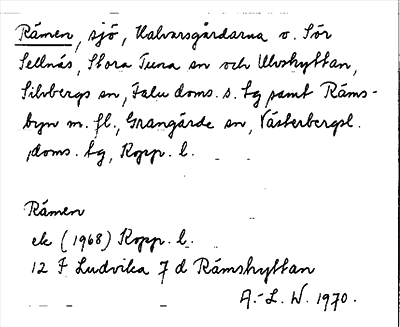 Rämen, sjö, Halvarsgårdarna o. Sör
Sellnäs, Stora Tuna sn och Ulvshyttan,
Silvbergs sn, Falu doms. s. tg samt Räms-
byn m. fl., Grangärde sn, Västerbergsl.
doms. tg, Kopp. l.
Rämen
ek (1968) Kopp. l.
12 F Ludvika 7 d Rämshyttan
A.-L. W. 1970.